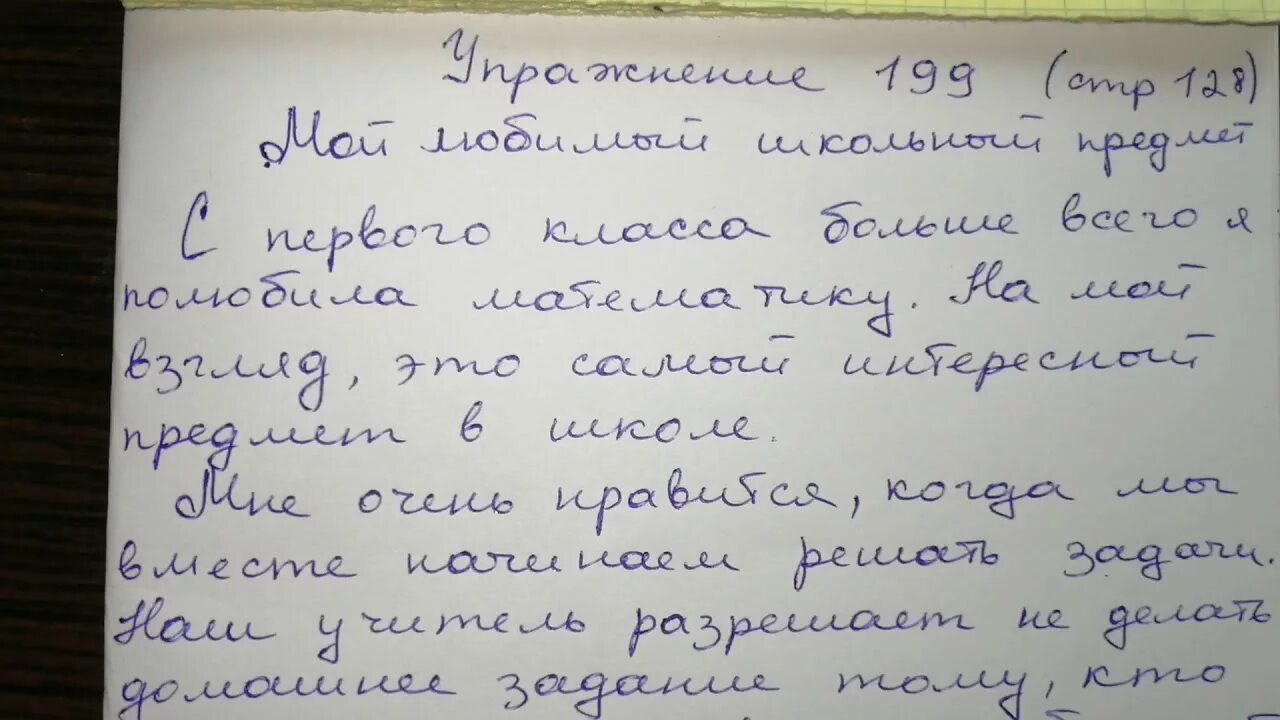 Упражнение 199 (стр 128)
Мой любимый школьный предмет
С первого класса больше всего я
полюбила математику. На мой
взгляд, это самый интересный
предмет в школе.
Мне очень нравится, когда мы
вместе начинаем решать задачи.
Наш учитель разрешает не делать
домашнее задание тому, кто